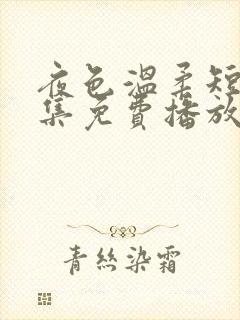 夜色温柔短
集免費播放
青絲染霜